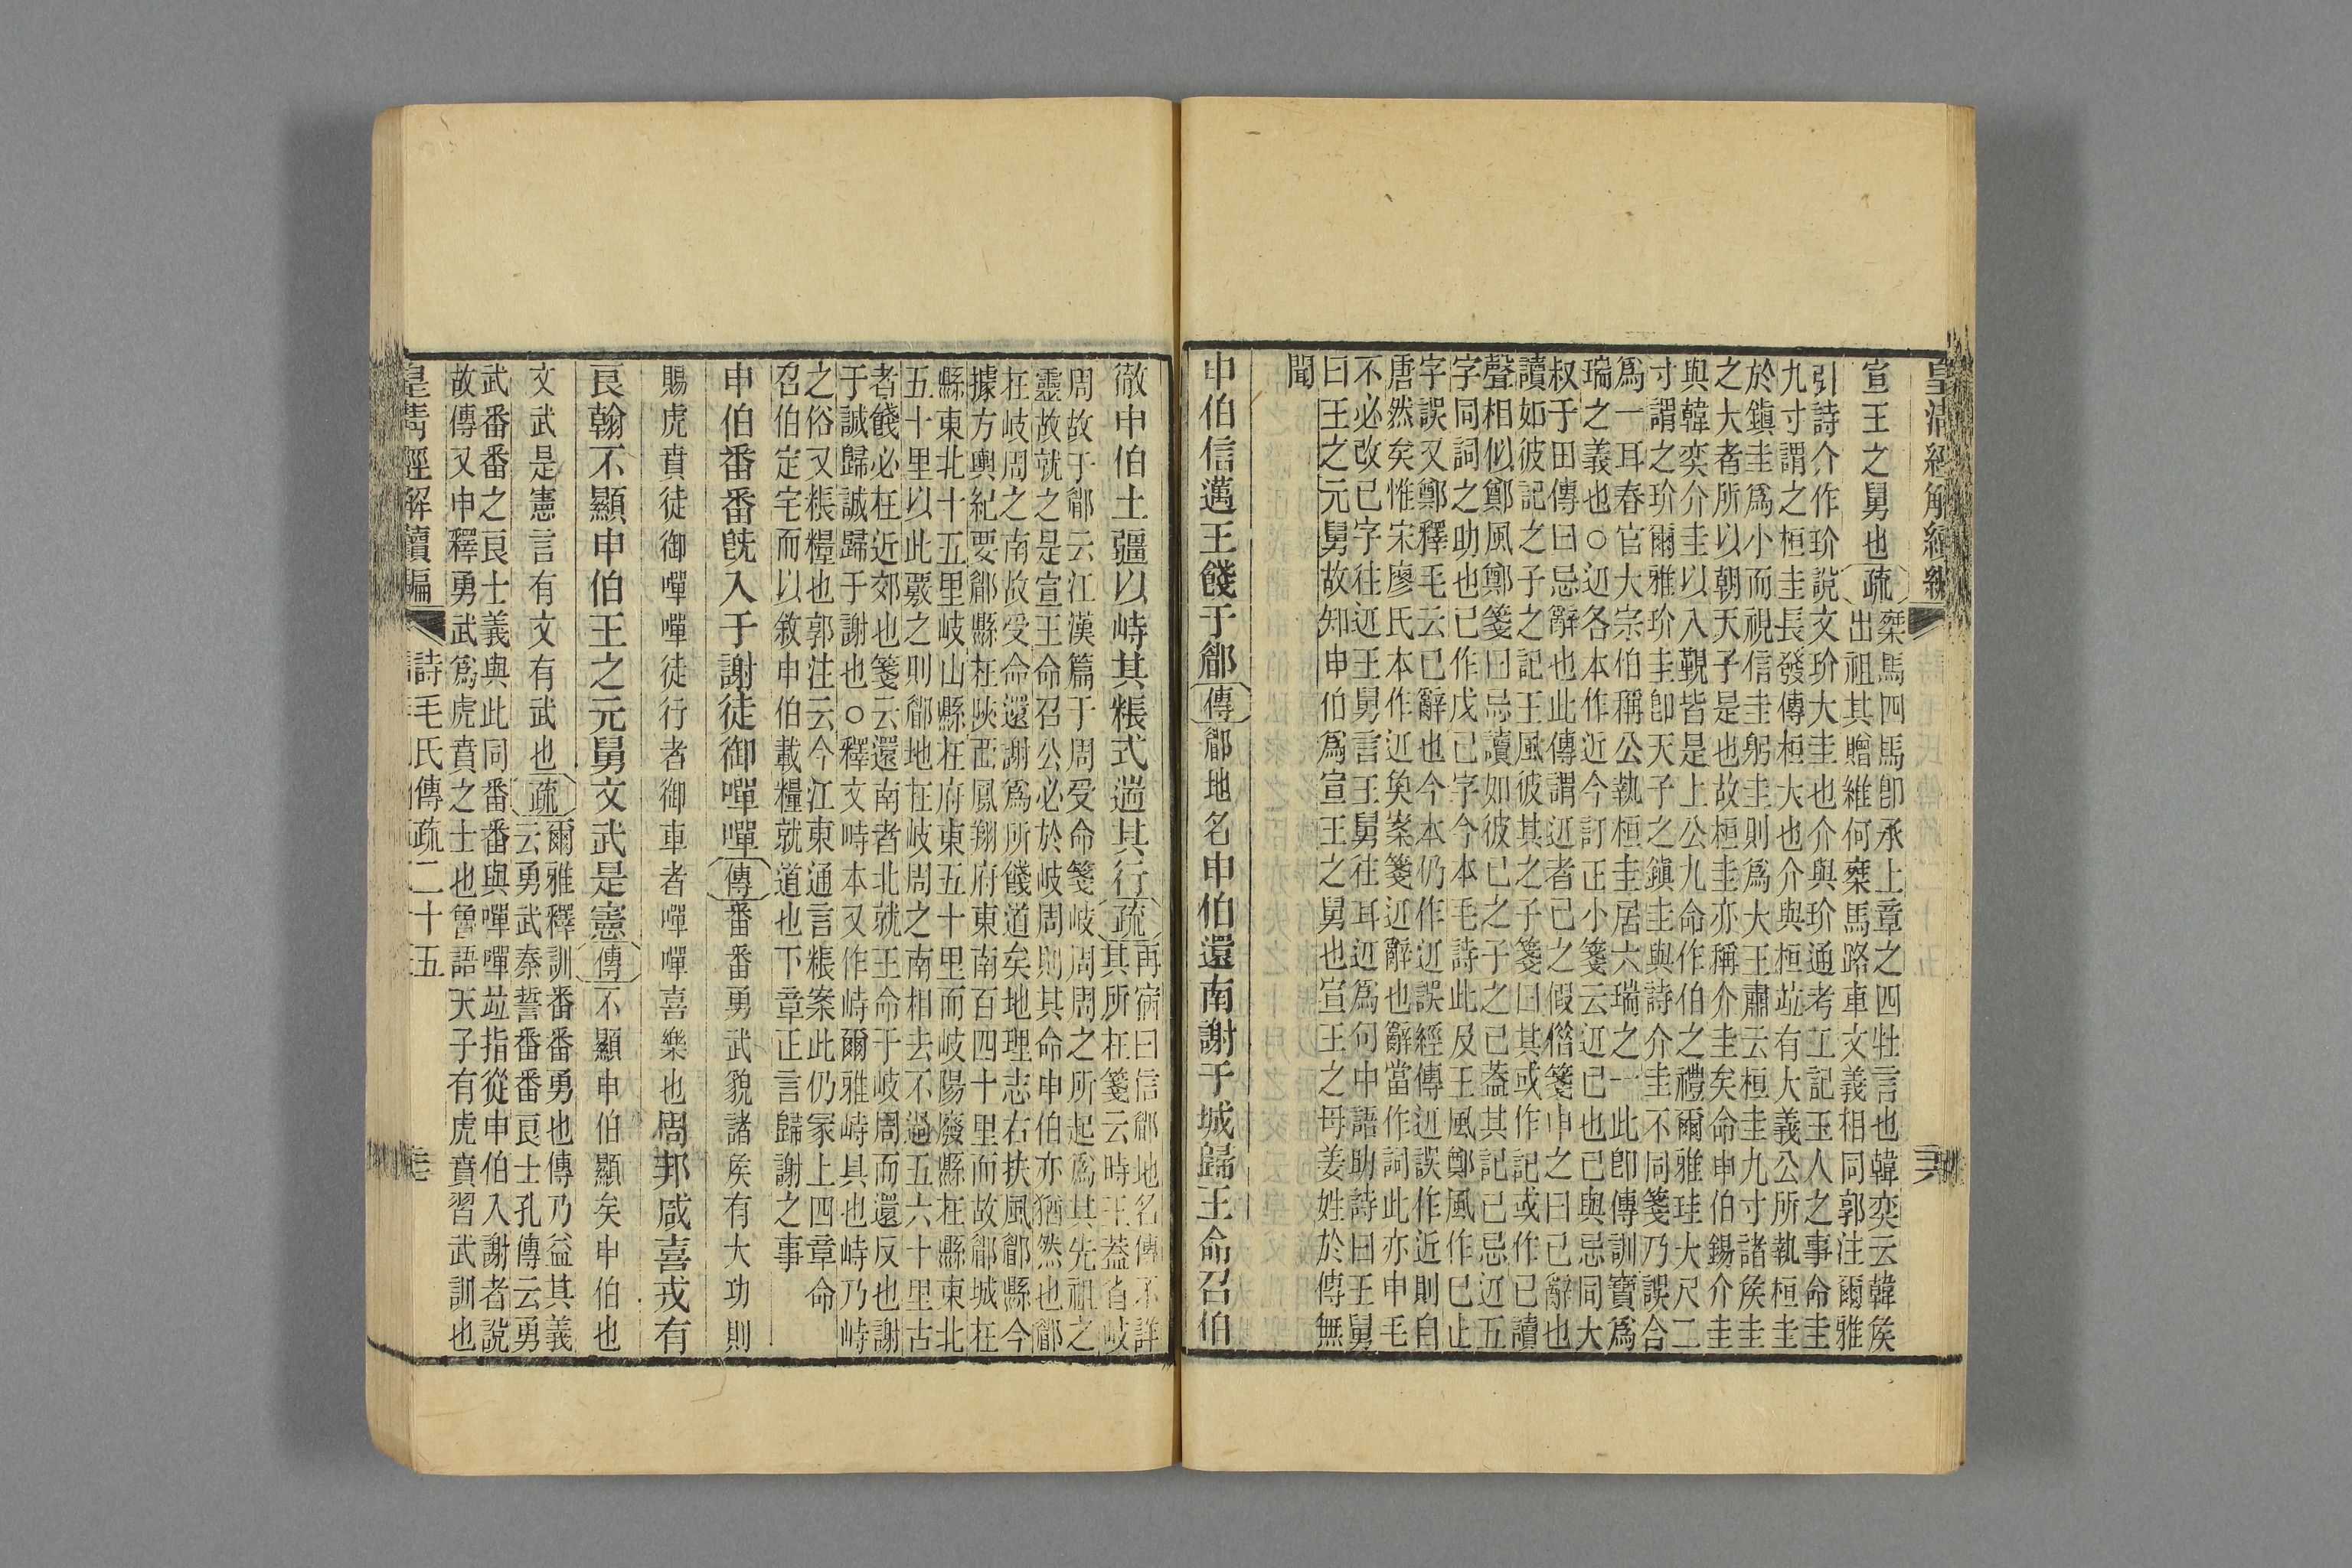 皇清經解續編
宣王之舅也疏
桀馬四馬卽承上章之四牡言也韓奕云韓矦
出祖其贈維何椉馬路車文義相同郭注爾雅
引詩介作玠說文玠大圭也介與玠通考工記玉人之事命圭
九寸謂之桓圭長發傳桓大也介與桓竝有大義公所執桓圭
於鎮圭爲小而視信圭躬圭則爲大王肅云桓圭九寸諸矦圭
之大者所以朝天子是也故桓圭亦稱介圭矣命申伯錫介圭
與韓奕介圭以入覲皆是上公九命作伯之禮爾雅珪大尺二
寸謂之玠爾雅玠圭卽天子之鎮圭與詩介圭不同箋乃誤合
爲一耳春官大宗伯稱公執桓圭居六瑞之一此卽傳訓寶爲
瑞之義也○辺各本作近今訂正小箋云辺已也已與忌同大
叔于田傳曰忌辭也此傳謂辺者已之假偺箋申之曰已辭也
讀如彼記之子之記王風彼其之子箋曰其或作記或作已讀
聲相似鄭風鄭箋曰忌讀如彼已之子之已蓋其記已忌辺五
字同詞之助也已作戊已字今本毛詩此及王風鄭風作已止
字誤又鄭釋毛云已辭也今本仍作辺誤經傳辺誤作近則自
唐然矣惟宋廖氏本作近矣案箋辺辭也辭當作詞此亦申毛
不必改已字往辺王舅言王舅往耳辺爲句中語助詩曰王舅
曰王之元舅故知申伯爲宣王之舅也宣王之母姜姓於傳無
聞
申伯信邁王餞于郿傳郿地名申伯還南謝于城歸王命召伯
徹申伯土疆以峙其粻式遄其行疏
再宿曰信郿地名傳不詳
其所在箋云時王蓋省岐
周故于郿云江漢篇于周受命箋岐周周之所起爲其先祖之
靈故就之是宣王命召公必於岐周則其命申伯亦猶然也郿
在岐周之南故受命還謝爲所餞道矣地理志右扶風郿縣今
據方輿紀要郿縣在陝西鳳翔府東南百四十里而故郿城在
縣東北十五里岐山縣在府東五十里而岐陽廢縣在縣東北
五十里以此覈之則郿地在岐周之南相去不過五六十里古
者餞必在近郊也箋云還南者北就王命于岐周而還反也謝
于誠歸誠歸于謝也○釋文峙本又作峙爾雅峙具也峙乃峙
之俗又粻糧也郭注云今江東通言粻案此仍冡上四章命
召伯定宅而以敘申伯載糧就道也下章正言歸謝之事
申伯番番旣入于謝徒御嘽嘽傳番番勇武貌諸矦有大功則
賜虎賁徒御嘽嘽徒行者御車者嘽嘽喜樂也周邦咸喜戎有
良翰不顯申伯王之元舅文武是憲傳不顯申伯顯矣申伯也
文武是憲言有文有武也疏
爾雅釋訓番番勇也傳乃益其義
云勇武秦誓番番良士孔傳云勇
武番番之良士義與此同番番與嘽嘽竝指從申伯入謝者說
故傳又申釋勇武爲虎賁之士也魯語天子有虎賁習武訓也
皇清經解續編
詩毛氏傳疏二十五